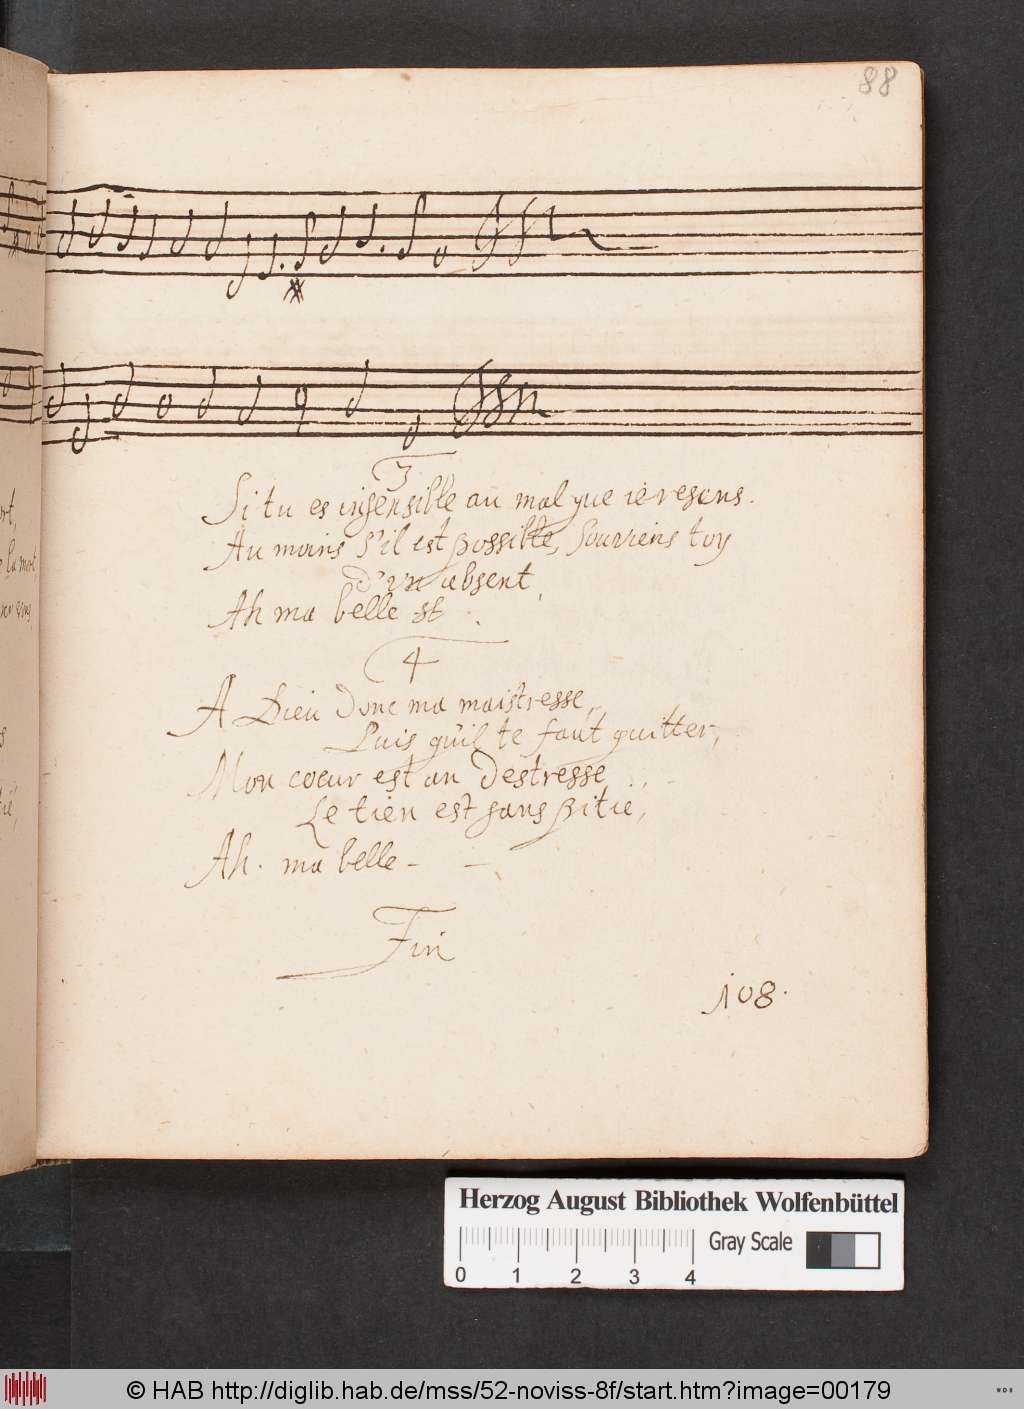 88
3
Si tu es insensible au mal que ie resens.
Au moins s'il est possible, souviens toy
d'vn absent,
Ah ma belle st.
4
A Dieu donc ma maistresse,
Puis qu'il te faut quitter,
Mon coeur est an destresse
Le tien est sans pitié,
Ah. ma belle - -
Fin
108.
Herzog August Bibliothek Wolfenbüttel
Gray Scale
0 1 2 3 4
© HAB http://diglib.hab.de/mss/52-noviss-8f/start.htm?image=00179